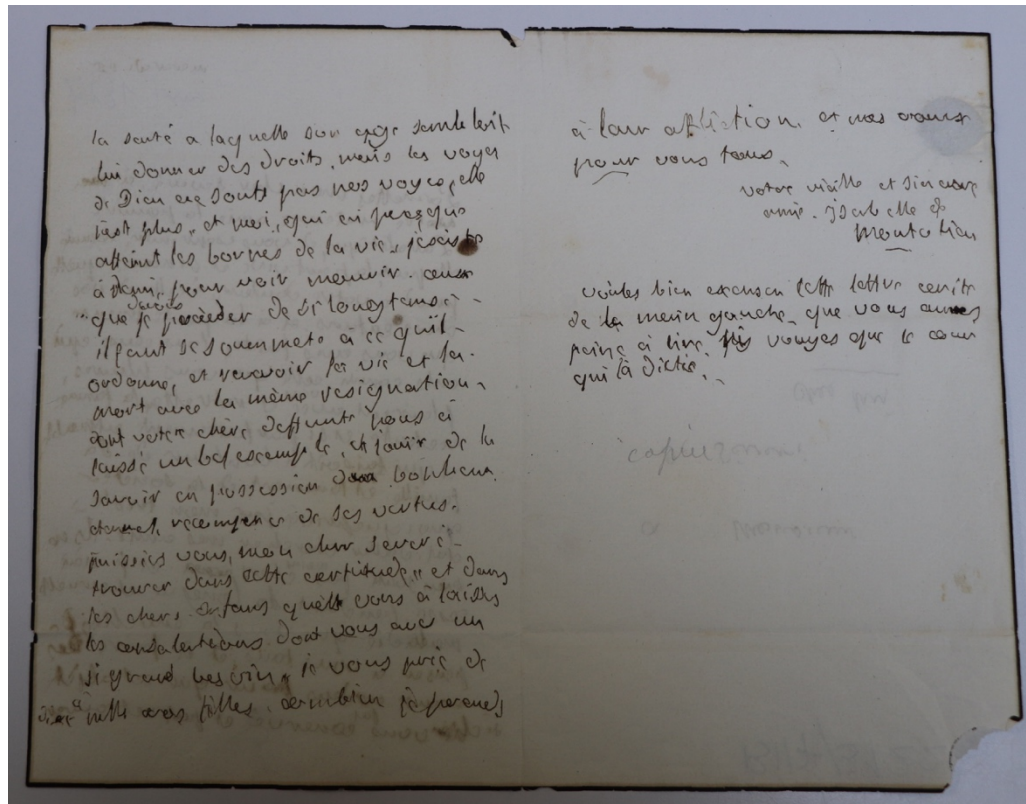 la santé a laquelle son age sembleroit
lui donner des droits, mais les voyes
de Dieu ne sonts pas nos voyes, elle
n'est plus, et moi, qui ai presque
atteint les bornes de la vie, j'existe
pour voir mourir ceux
devois
que je précéder de si longtems
il faut se soumettre à ce qu'il
ordonne, et recevoir la vie et la
mort avec la même resignation
dont votre chère deffunte nous à
laissé un bel exemple, et jouir de la
savoir en possession du bonheur
éternel, recompense de ses vertus.
puissiés vous, mon cher
trouver dans cette certitude, et dans
les chers enfans qu'elle vous à laissés
les consolations dont vous avés un
si grand besoin, je vous prie de
dire à vos filles combien je prends
à leur affliction. et mes vœux
pour vous tous.
votre vieille et sincere
amie. Isabelle de
Montolieu
veuilés bien excuser cette lettre ecrite
de la main gauche, que vous aurés
peine à lire, voyes que le cœur
qui l'à dictée.